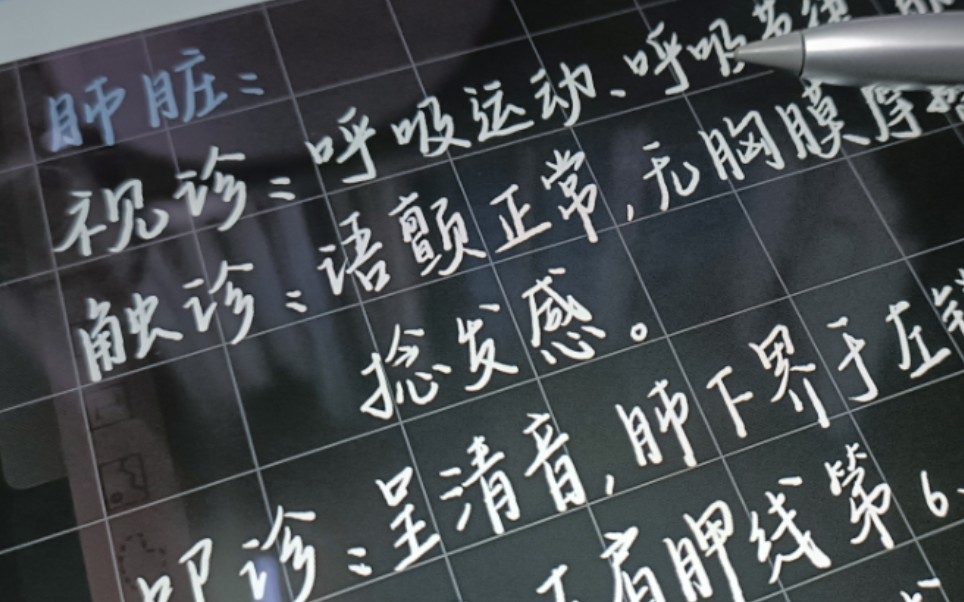 肺脏：
视诊：呼吸运动、呼吸
触诊：语颤正常，无胸膜摩擦
捻发感。
叩诊：呈清音，肺下界于左锁
肩胛线第6、